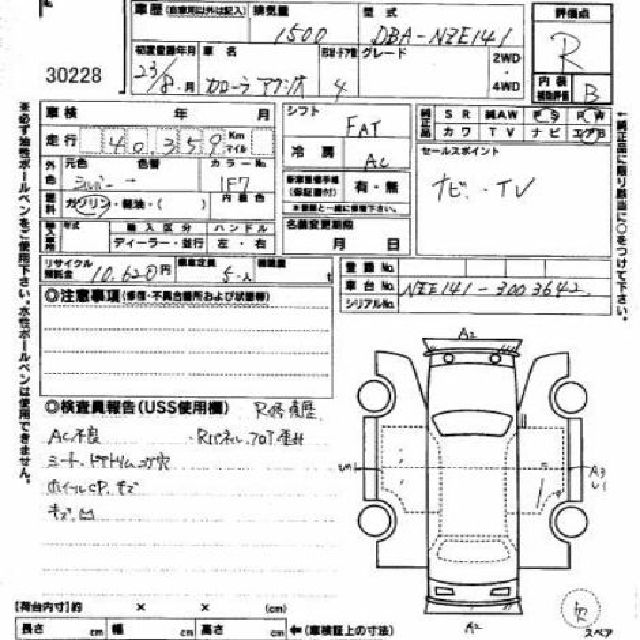 車歴(自家用以外は記入) 排気量 型式 評価点
1500 DBA-NZE141 R
30228
初度登録年月 車名 グレード 2WD 4WD
23/8月 カローラアクシオ 4
内装 補助評価 B
車検 年 月 シフト FAT
純正品 SR 純AW PS PW
カワ TV ナビ エアB
走行 40,359 Km マイル
冷房 AC
セールスポイント
ナビ・TV
外色 元色 色替 カラーNo.
シルバー 1F7
内装色
燃料 ガソリン・軽油・( )
有・無
輸入車用 年式 輸入区分 ハンドル
ディーラー・並行 左・右
名義変更期限
月 日
リサイクル預託金 10,620円 乗車定員 5人 積載量 t
登録No.
車台No. NZE141-3003642
シリアルNo.
◎注意事項(修復・不具合箇所および状態等)
◎検査員報告(USS使用欄) R修復歴
AC不良 ・Rパネル、フロア歪み
シート、ドアトリム コゲ穴
ホイールCP、キズ
キズ凹
A2
A3
U1
A2
スペア
【荷台内寸】約 × × (cm)
長さ cm 幅 cm 高さ cm ←(車検証上の寸法)
※必ず油性ボールペンをご使用下さい。水性ボールペンは使用できません。
↑純正品に限り該当に○をつけて下さい。